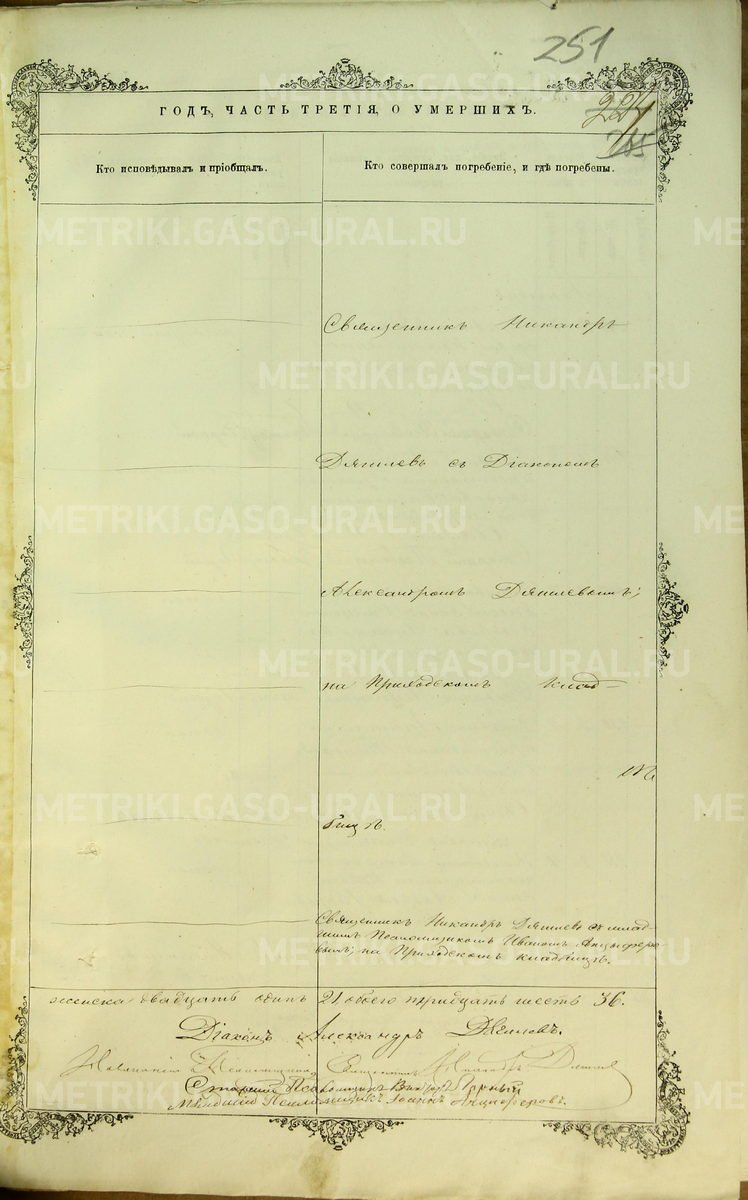 251
ГОДЪ, ЧАСТЬ ТРЕТІЯ, О УМЕРШИХЪ.
Кто исповѣдывалъ и пріобщалъ.
Кто совершалъ погребеніе, и гдѣ погребены.
Священникъ Никандръ
Дягилевъ съ Діакономъ
Александромъ Дягилевымъ;
на Приходскомъ клад-
бищѣ.
Священникъ Никандръ Дягилевъ съ млад-
шимъ Псаломщикомъ Иваномъ Анциферо-
вымъ; на Приходскомъ кладбищѣ.
женска двадцать одинъ 21 обоего тридцать шесть 36.
Діаконъ Александръ
Священникъ Никандръ
Старшій Псаломщикъ Викторъ
Младшій Псаломщикъ Іоаннъ Анциферовъ.
METRIKI.GASO-URAL.RU